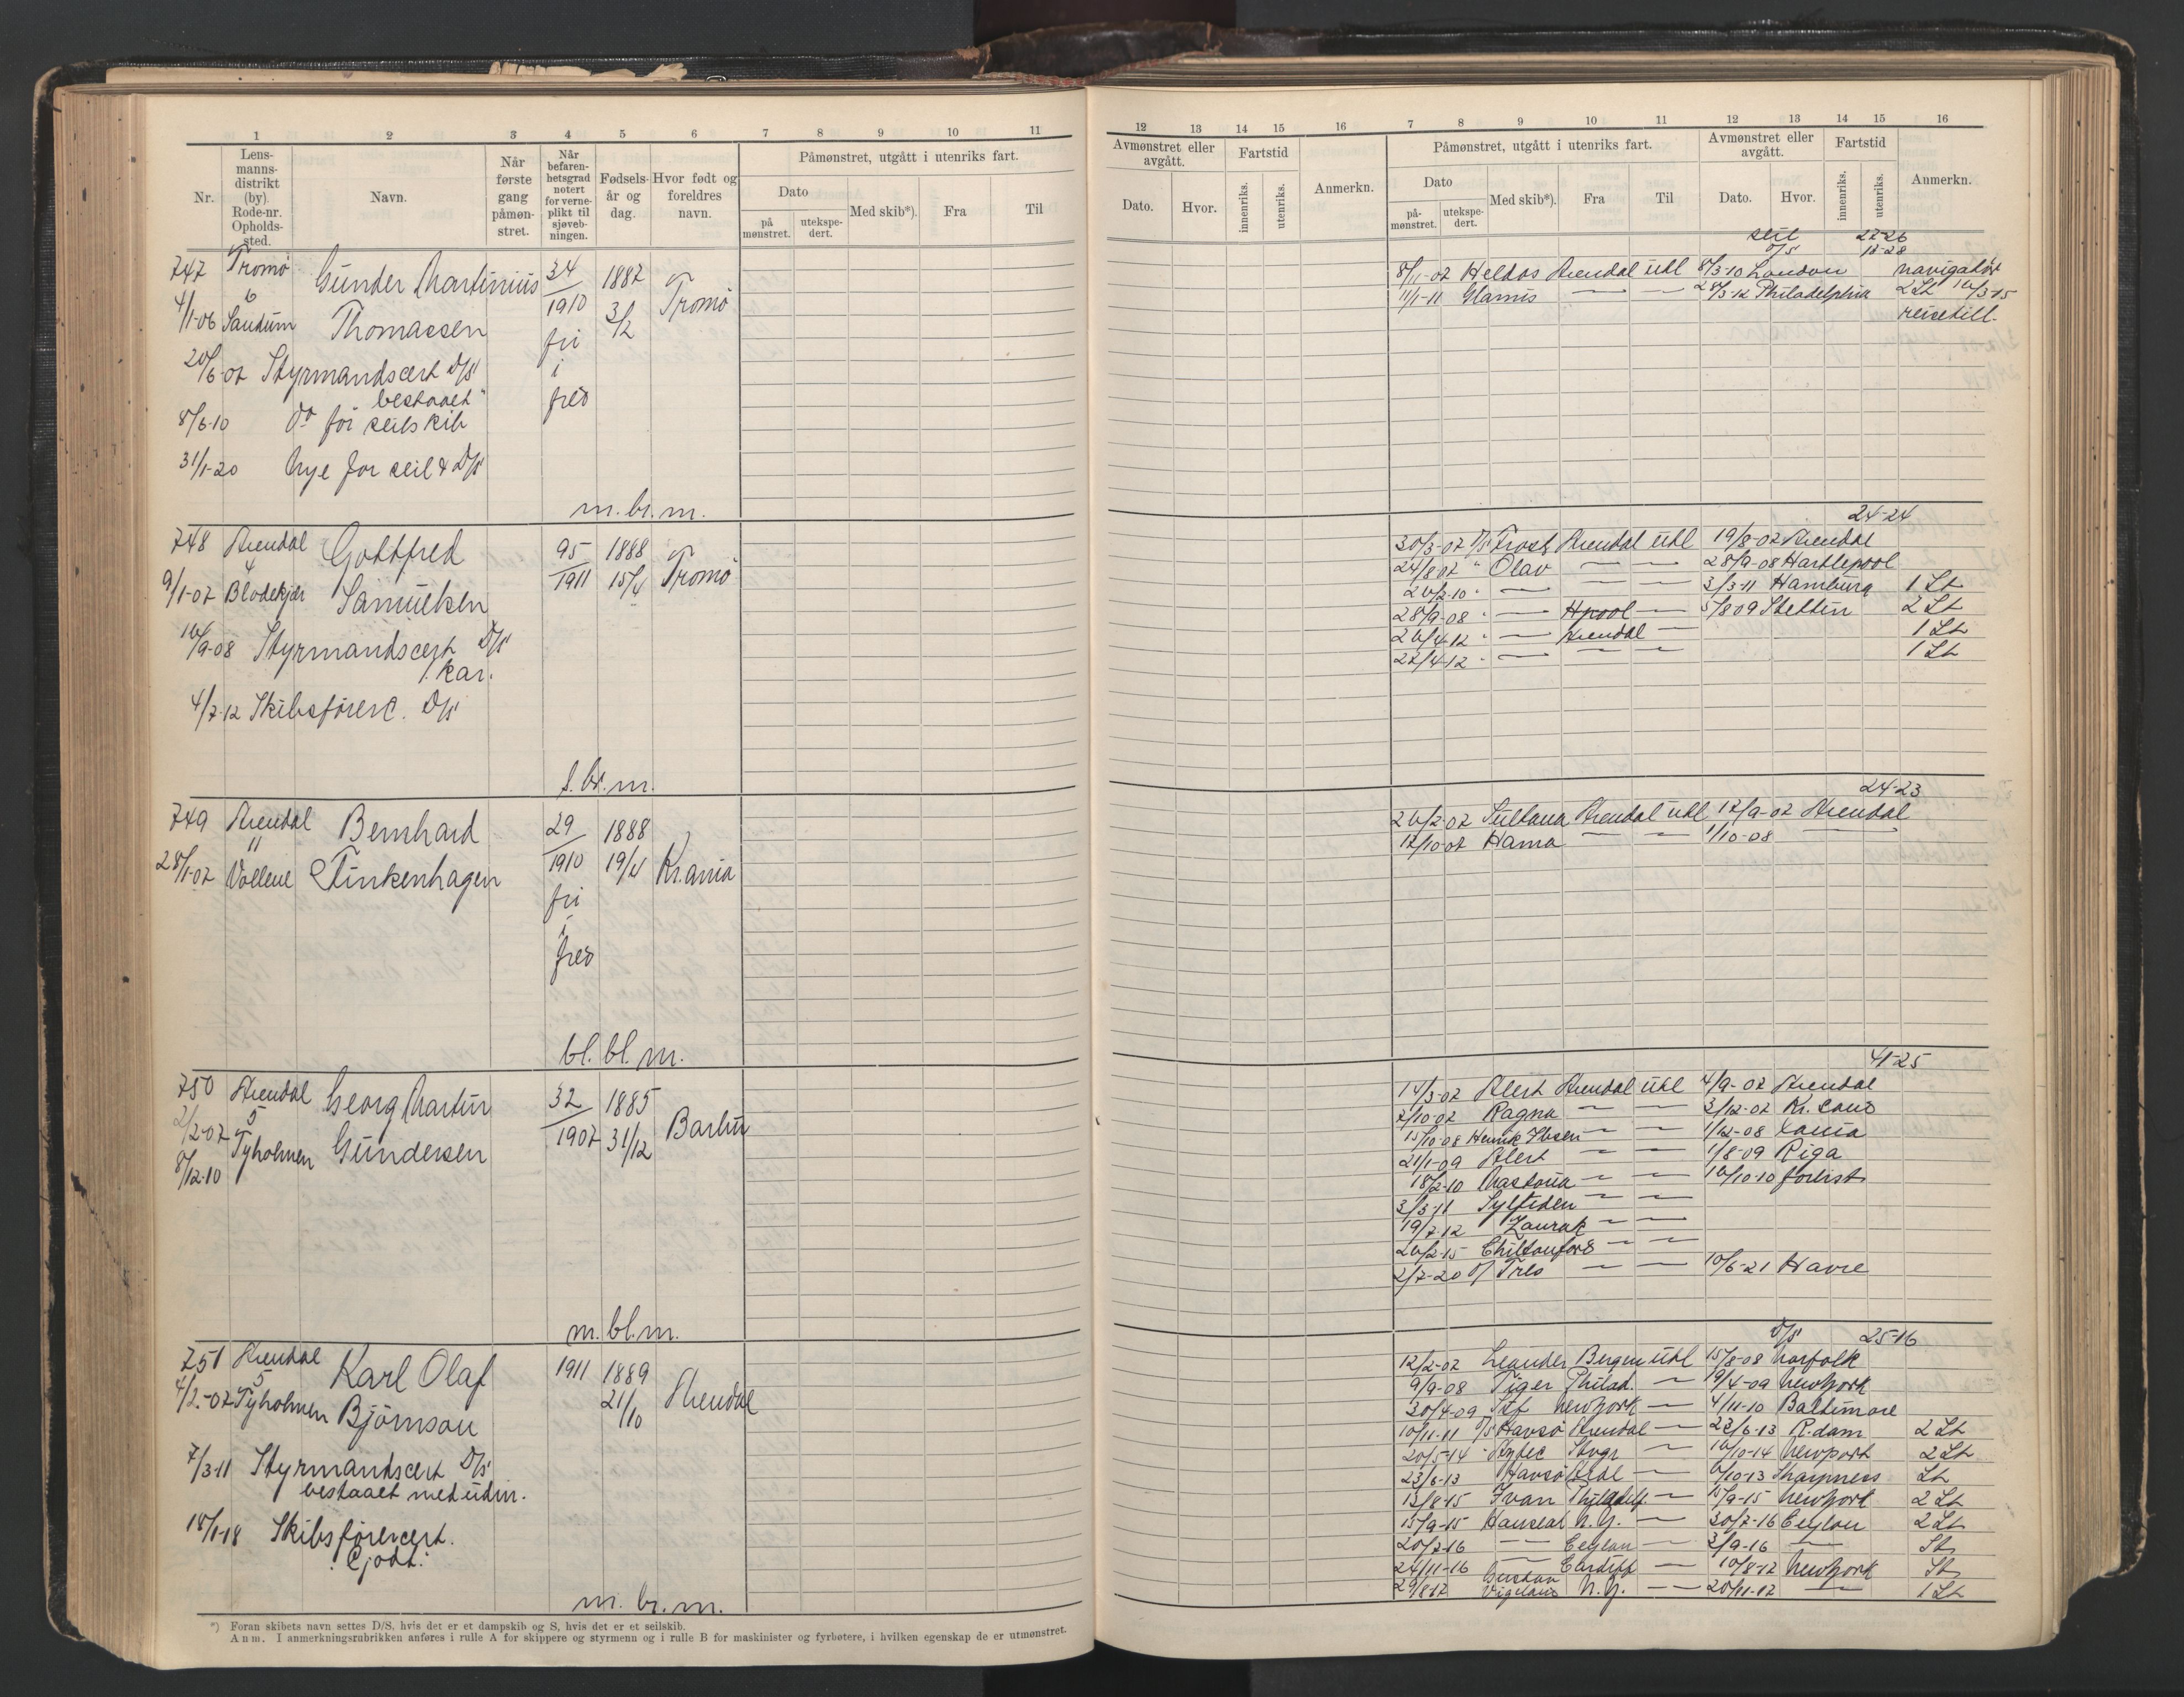 1 2 3 4 5 6 7 8 9 10 11
Nr. Lens-manns-distrikt (by). Rode-nr. Opholds-sted. Navn. Når første gang påmøn-stret. Når befaren-hetsgrad notert for verne-plikt til sjøveb-ningen. Fødsels-år og dag. Hvor født og foreldres navn. Påmønstret, utgått i utenriks fart.
Dato Med skib*). Fra Til
på mønstret. utekspe-dert.
747 Tromö Gunder Martinius 34 1887
4/1-06 6 1910 3/2 Tromö
Sandum Thomassen fri
20/6-07 Styrmandscert D/S i
bestaaet fred
8/6-10 Do for seilskib
31/1-20 Nye for seil & D/S
m. br. m.
748 Arendal Gottfred 95 1888
4 1911 15/4 Tromö
9/1-07 Blödekjær Samuelsen
16/9-08 Styrmandscert D/S
1. kar.
4/7-12 Skibsförerc. D/S
s. br. m.
749 Arendal Bernhard 29 1888
11 1910 19/4 Kr.ania
28/1-07 Vollene Finkenhagen
fri
i
fred
bl. bl. m.
750 Arendal Georg Martin 32 1885
2/2-07 5 1907 31/12 Barbu
Tyholmen Gundersen
8/12-10
m. bl. m.
751 Arendal Karl Olaf 1911 1889
4/2-07 5 21/10 Arendal
Tyholmen Björnson
7/3-11 Styrmandscert D/S
bestaaet med udm.
18/1-18 Skibsförercert.
Godt.
m. br. m.
*) Foran skibets navn settes D/S, hvis det er et dampskib og S, hvis det er et seilskib.
Anm. I anmerkningsrubrikken anføres i rulle A for skippere og styrmenn og i rulle B for maskinister og fyrbøtere, i hvilken egenskap de er utmønstret.
12 13 14 15 16 7 8 9 10 11 12 13 14 15 16
Avmønstret eller avgått. Fartstid Anmerkn. Påmønstret, utgått i utenriks fart. Avmønstret eller avgått. Fartstid Anmerkn.
Dato. Hvor. innenriks. utenriks. Dato Med skib*). Fra Til Dato. Hvor. innenriks. utenriks.
på-mønstret. utekspe-dert.
seil 27-26
D/S 18-28
8/11-07 Heldos Arendal udl 8/3-10 London navigatör
11/1-11 Glamis — — 28/3-12 Philadelphia 2 St 16/3-15
reisetill.
24-24
30/3-07 D/S Frost Arendal udl 19/8-07 Arendal
24/8 07 " Olav — — 28/9-08 Hartlepool
26/2-10 " — — — 3/3-11 Hamburg 1 St
28/9-08 " — Hpool — 5/8 09 Stettin 2 St
26/4-12 " — Arendal — 1 St
22/4-12 " — — — 1 St
24-23
26/2-07 Sultana Arendal udl 17/9-07 Arendal
17/10-07 Hama — — 1/10-08 —
41-25
14/3-07 Alert Arendal udl 4/9-07 Arendal
7/10-07 Ragna — — 3/12-07 Kr.sand
15/10-08 Henrik Ibsen — — 1/12-08
21/1-09 Alert — — 1/8-09 Riga
18/2-10 — — 16/10-10 forlist
3/3-11 Sylfiden — —
19/7-12 Zaurak — —
26/2-15 Chiltonford — —
2/7-20 D/ Tres — — 10/6-21 Havre
D/S 25-16
12/2-07 Leander Bergen udl 15/8-08 Norfolk
9/9-08 Tiger Philad. — 19/4-09 Newyork
30/4-09 Newyork — 4/11-10 Baltimore
10/11-11 D/S Havsö Arendal — 23/6-13 R.dam 2 St
20/5-14 Stvgr — 16/10-14 Newport 2 St
23/6-13 Havsö Ardl — 6/10-13 Sharpness St
13/8-15 Ivan Philadelf. — 15/9-15 Newyork 2 St
15/9-15 Hanseat N.Y. — 30/7-16 Ceylon 2 St
20/7-16 — Ceylon — 2/9-16 — St
24/11-16 — Cardiff — 10/8-17 Newyork St
29/8 17 Gustav Vigeland N.Y. — 20/11-17 — 1 St